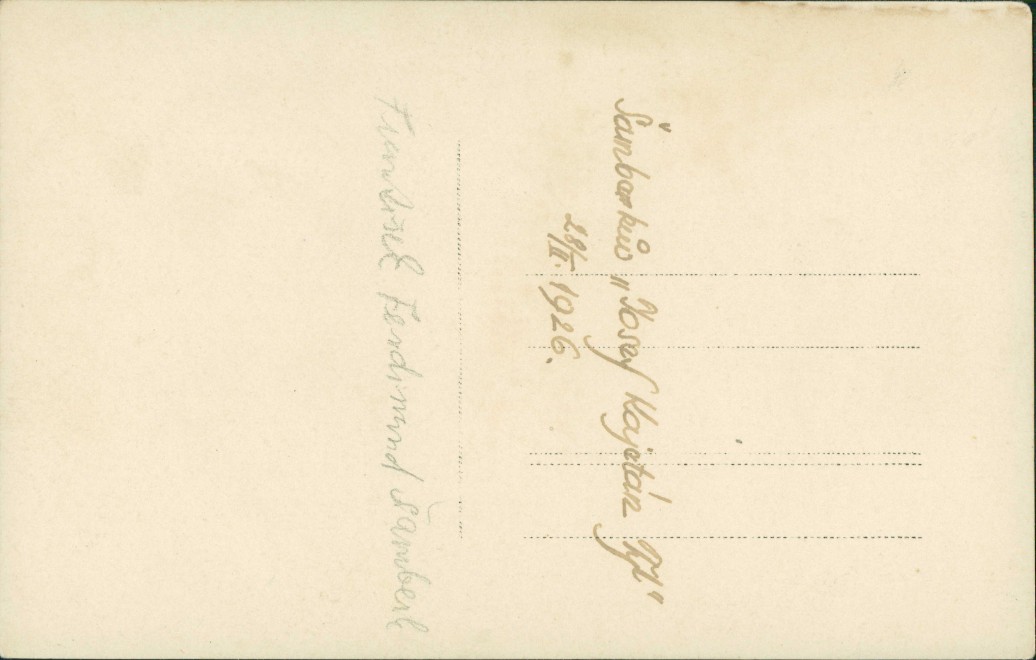 Šamberkův „Josef Kajetán Tyl"
28/II. 1926.
František Ferdinand Šamberk